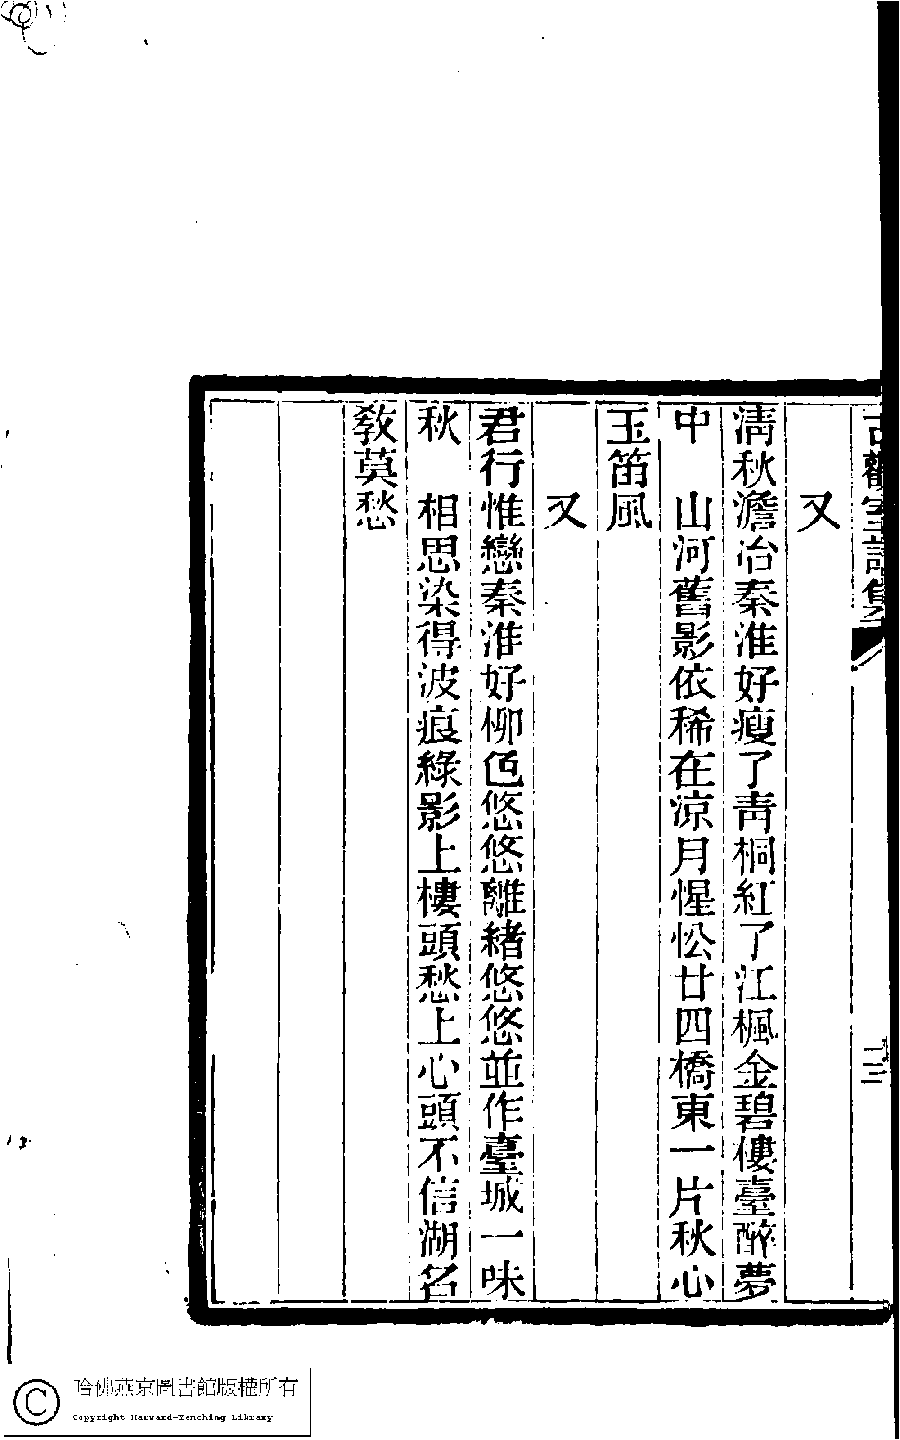 古歡室詩集
三
又
淸秋澹冶秦淮好瘦了靑桐紅了江楓金碧樓臺醉夢
中　山河舊影依稀在涼月惺忪廿四橋東一片秋心
玉笛風
又
君行惟戀秦淮好柳色悠悠離緒悠悠並作臺城一味
秋　相思染得波痕綠影上樓頭愁上心頭不信湖名
敎莫愁
哈佛燕京圖書館版權所有
Copyright Harvard-Yenching Library